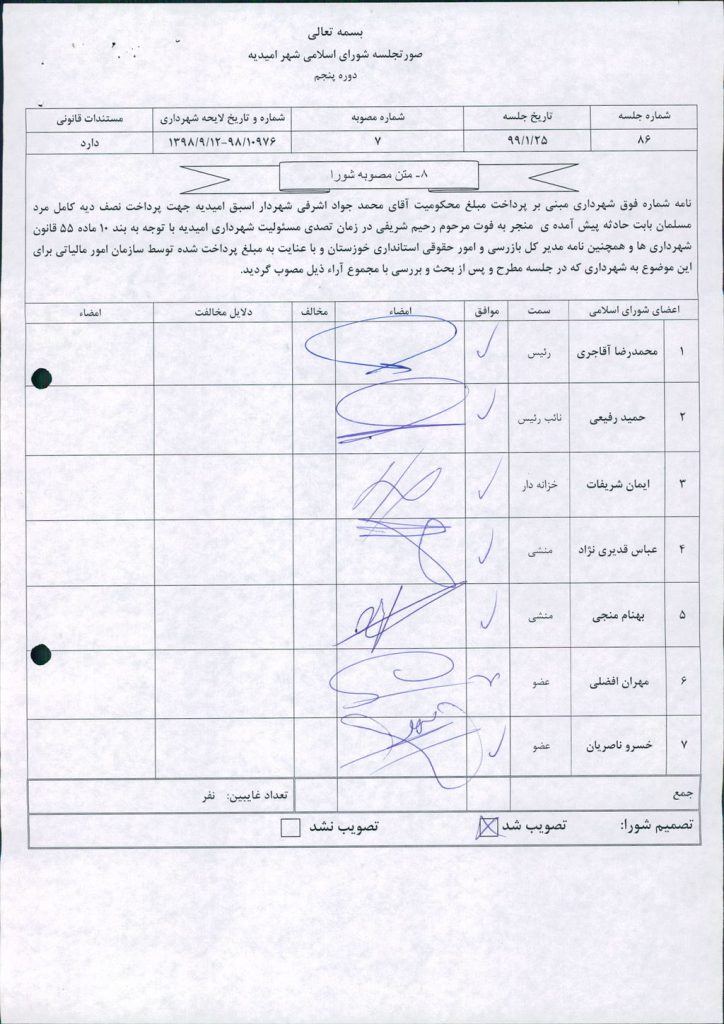 بسمه تعالی
صورتجلسه شورای اسلامی شهر امیدیه
دوره پنجم
شماره جلسه تاریخ جلسه شماره مصوبه شماره و تاریخ لایحه شهرداری مستندات قانونی
۸۶ ۹۹/۱/۲۵ ۷ ۱۳۹۸/۹/۱۲-۹۸/۱۰۹۷۶ دارد
۸- متن مصوبه شورا
نامه شماره فوق شهرداری مبنی بر پرداخت مبلغ محکومیت آقای محمد جواد اشرفی شهردار اسبق امیدیه جهت پرداخت نصف دیه کامل مرد
مسلمان بابت حادثه پیش آمده ی منجر به فوت مرحوم رحیم شریفی در زمان تصدی مسئولیت شهرداری امیدیه با توجه به بند ۱۰ ماده ۵۵ قانون
شهرداری ها و همچنین نامه مدیر کل بازرسی و امور حقوقی استانداری خوزستان و با عنایت به مبلغ پرداخت شده توسط سازمان امور مالیاتی برای
این موضوع به شهرداری که در جلسه مطرح و پس از بحث و بررسی با مجموع آراء ذیل مصوب گردید.
اعضای شورای اسلامی سمت موافق امضاء مخالف دلایل مخالفت امضاء
۱ محمدرضا آقاجری رئیس
۲ حمید رفیعی نائب رئیس
۳ ایمان شریفات خزانه دار
۴ عباس قدیری نژاد منشی
۵ بهنام منجی منشی
۶ مهران افضلی عضو
۷ خسرو ناصریان عضو
جمع تعداد غایبین: نفر
تصمیم شورا: تصویب شد تصویب نشد